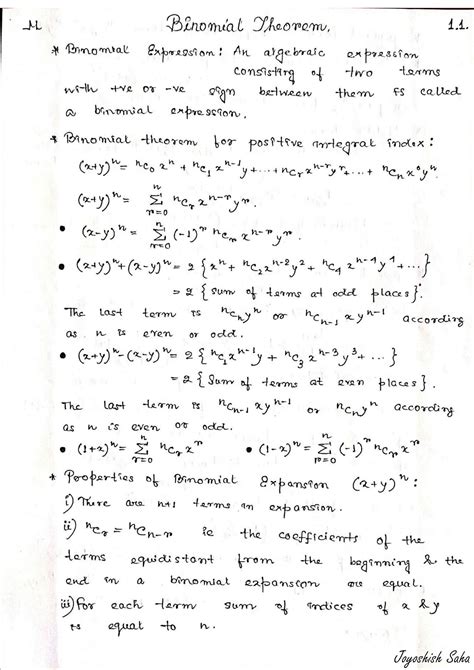 M Binomial Theorem. 1.1.
* Binomial Expression: An algebraic expression
consisting of two terms
with +ve or -ve sign between them is called
a binomial expression.
* Binomial theorem for positive integral index:
(x+y)ⁿ = ⁿC₀ xⁿ + ⁿC₁ xⁿ⁻¹y + ... + ⁿCᵣ xⁿ⁻ʳyʳ + ... + ⁿCₙ x⁰yⁿ
(x+y)ⁿ = Σ_{r=0}^{n} ⁿCᵣ xⁿ⁻ʳyʳ.
• (x-y)ⁿ = Σ_{r=0}^{n} (-1)ʳ ⁿCᵣ xⁿ⁻ʳyʳ.
• (x+y)ⁿ+(x-y)ⁿ = 2 {xⁿ + ⁿC₂xⁿ⁻²y² + ⁿC₄ xⁿ⁻⁴y⁴ + ...}
= 2 {sum of terms at odd places}.
The last term is ⁿCₙyⁿ or ⁿCₙ₋₁ xyⁿ⁻¹ according
as n is even or odd.
• (x+y)ⁿ-(x-y)ⁿ = 2 {ⁿC₁xⁿ⁻¹y + ⁿC₃ xⁿ⁻³y³ + ...}
= 2 {Sum of terms at even places}.
The last term is ⁿCₙ₋₁ xyⁿ⁻¹ or ⁿCₙyⁿ according
as n is even or odd.
• (1+x)ⁿ = Σ_{r=0}^{n} ⁿCᵣ xʳ • (1-x)ⁿ = Σ_{r=0}^{n} (-1)ʳ ⁿCᵣ xʳ
* Properties of Binomial Expansion (x+y)ⁿ:
i) There are n+1 terms in expansion.
ii) ⁿCᵣ = ⁿCₙ₋ᵣ ie the coefficients of the
terms equidistant from the beginning & the
end in a binomial expansion are equal.
iii) For each term sum of indices of x & y
is equal to n.
Joyoshish Saha